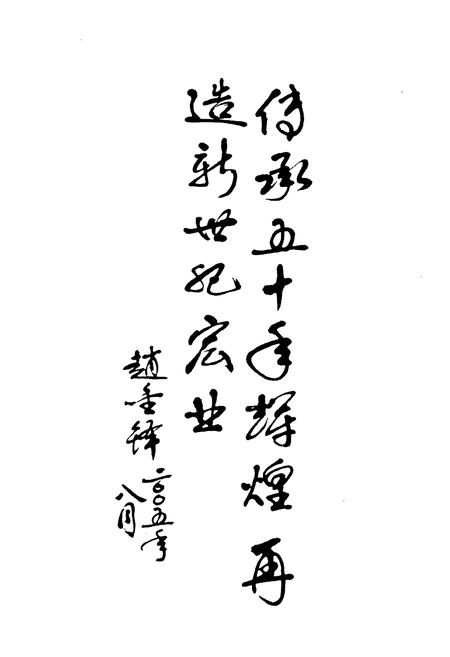 传承五十年辉煌再
造新世纪宏业
趙金铎 二〇〇五年
八月